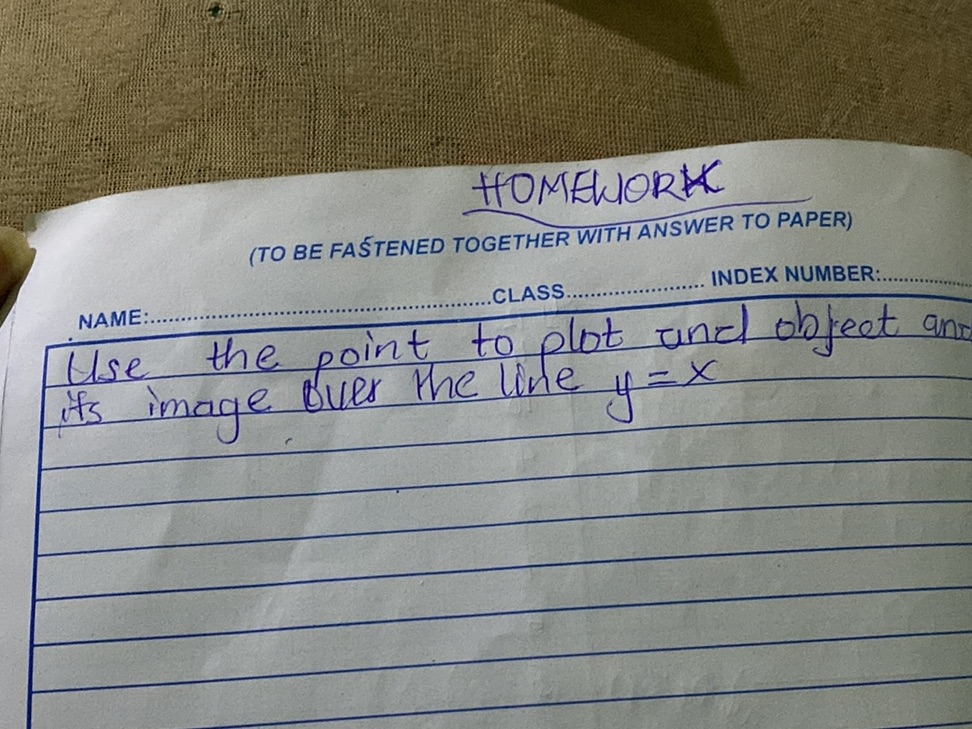 HOMEWORK
(TO BE FASTENED TOGETHER WITH ANSWER TO PAPER)
NAME:..........CLASS.......... INDEX NUMBER:..........
Use the point to plot and object and
its image over the line y = x